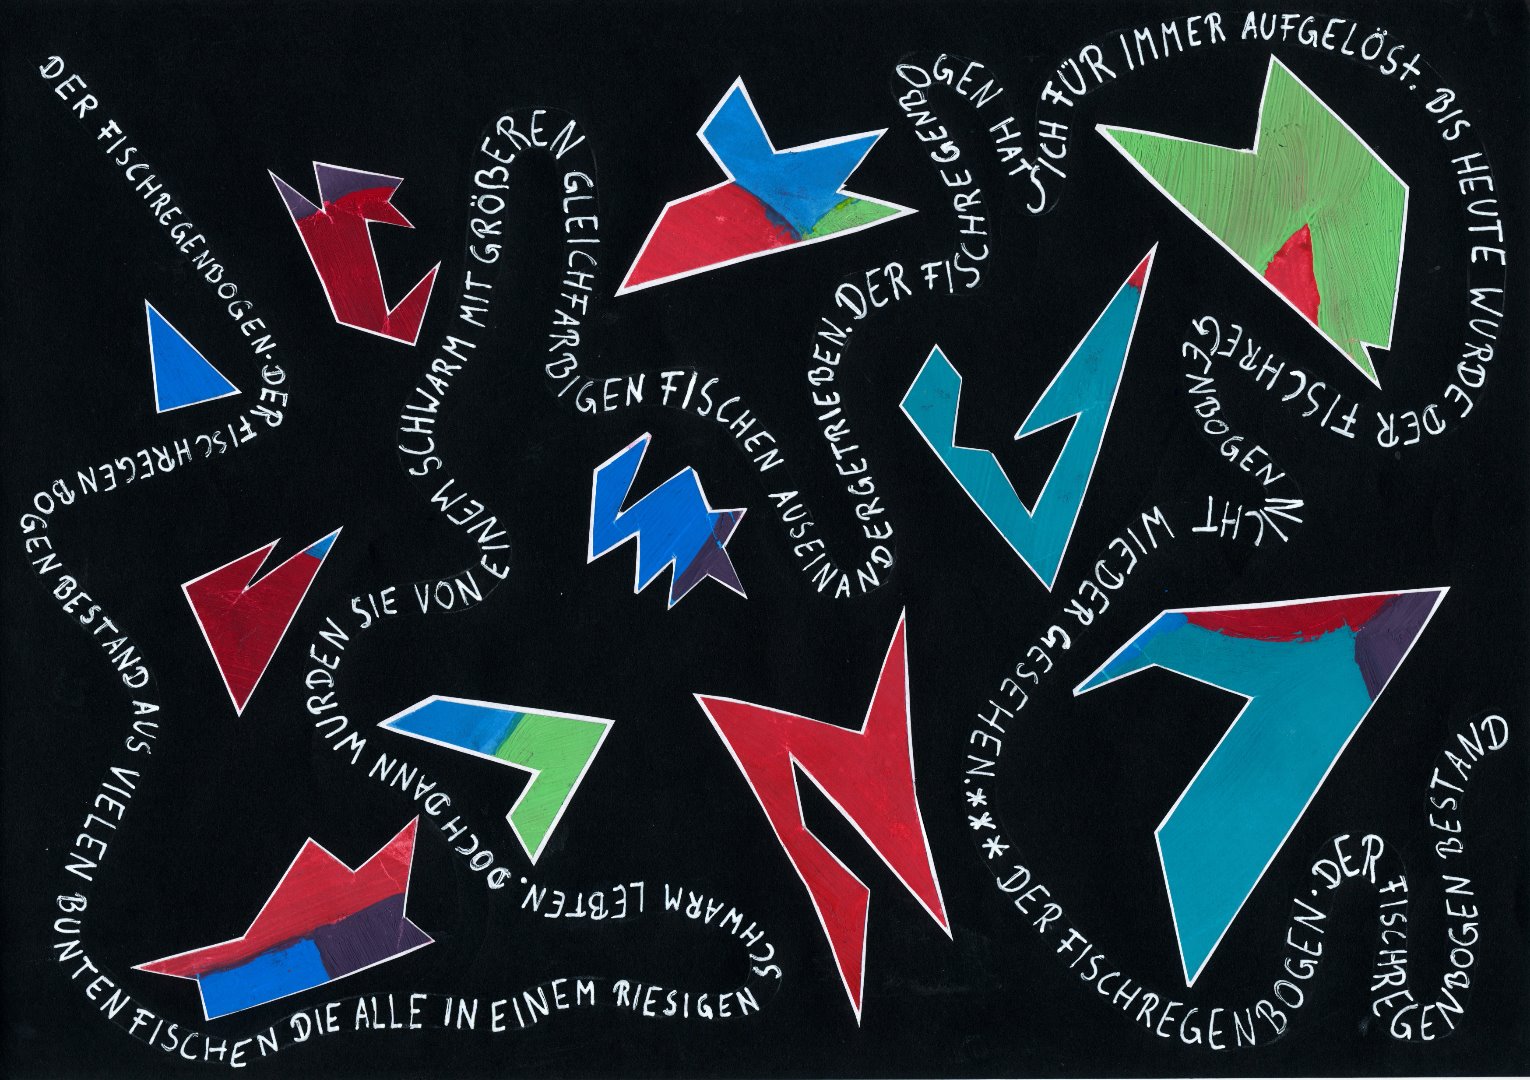 DER FISCHREGENBOGEN. DER FISCHREGENBOGEN BESTAND AUS VIELEN BUNTEN FISCHEN DIE ALLE IN EINEM RIESIGEN SCHWARM LEBTEN. DOCH DANN WURDEN SIE VON EINEM SCHWARM MIT GRÖßEREN GLEICHFARBIGEN FISCHEN AUSEINANDERGETRIEBEN. DER FISCHREGENBOGEN HAT SICH FÜR IMMER AUFGELÖST. BIS HEUTE WURDE DER FISCHREGENBOGEN NICHT WIEDER GESEHEN. **** DER FISCHREGENBOGEN. DER FISCHREGENBOGEN BESTAND